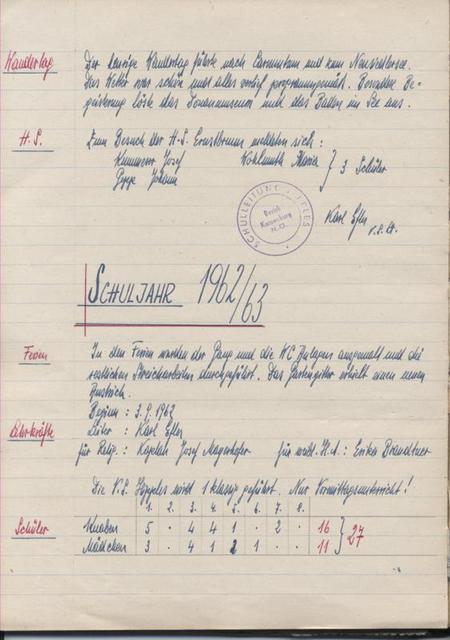 Wandertag Der heurige Wandertag führte nach Carnuntum und zum Neusiedlersee.
Das Wetter war schön und alles verlief programmgemäß. Besondere Be-
geisterung löste das Donaumuseum und das Baden im See aus.
H.S. Zum Besuch der H.S. Ernstbrunn meldeten sich:
Kummerer Josef Wohlmuth Maria } 3 Schüler
Johann
SCHULLEITUNG
Bezirk
Korneuburg
N.Ö.
Karl Efler
SCHULJAHR 1962/63
Ferien In den Ferien wurden der Gang und die WC Anlagen ausgemalt und die
restlichen Streicharbeiten durchgeführt. Das Gartengitter erhielt einen neuen
Anstrich.
Beginn : 3.9.1962
Lehrkräfte Leiter : Karl Efler
für Relig. : Kaplan Josef Mayerhofer für weibl. H.A. : Erika Brandtner
Die V.S. wird 1 klassig geführt. Nur Vormittagsunterricht!
1. 2. 3. 4. 5. 6. 7. 8.
Schüler Knaben 5 . 4 4 1 . 2 . 16 } 27
Mädchen 3 . 4 1 2 1 . . 11